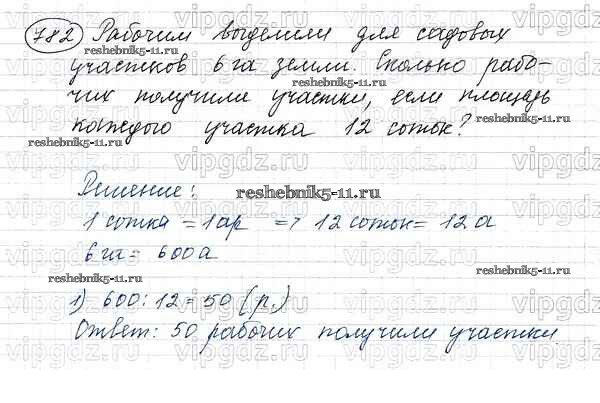 782 Рабочим выделили для садовых
участков 6 га земли. Сколько рабо-
чих получили участки, если площадь
каждого участка 12 соток?
Решение:
1 сотка = 1 ар => 12 соток = 12 а
6 га = 600 а
1) 600 : 12 = 50 (р.)
Ответ: 50 рабочих получили участки
reshebnik5-11.ru
vipgdz.ru